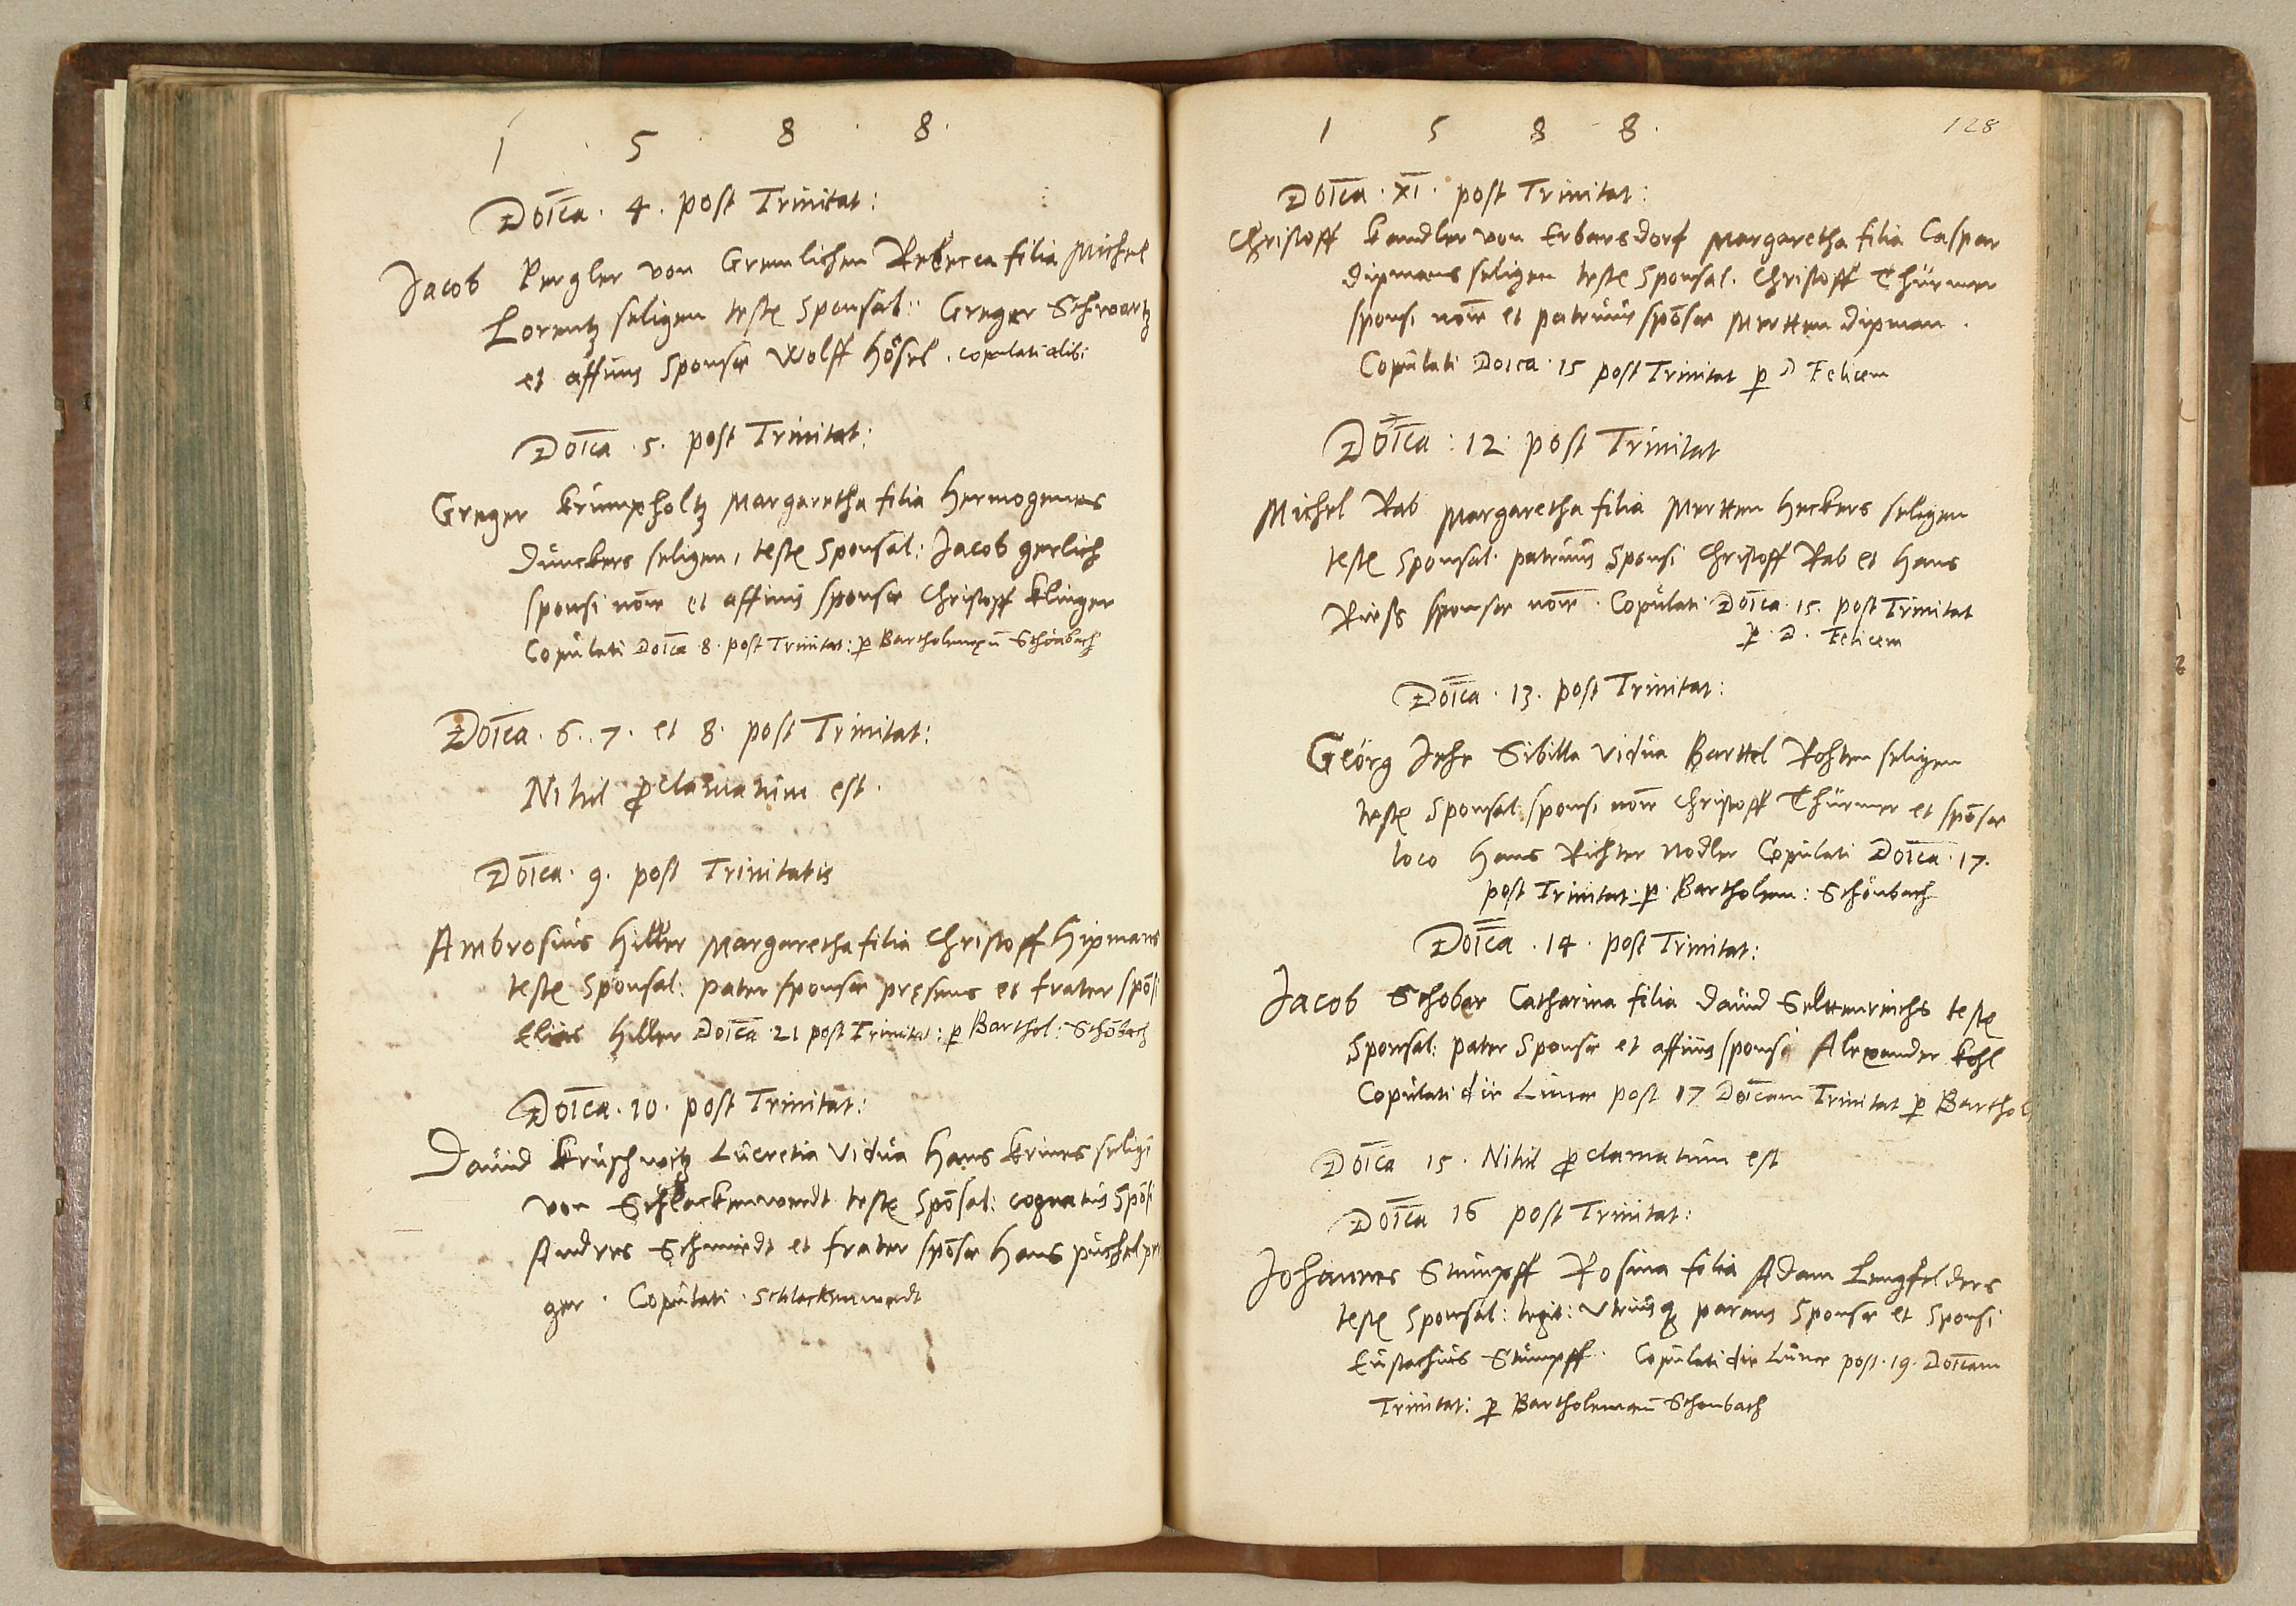 1 5 8 8.
Doica. 4. post Trinitat:
Jacob Pergler von Gremlichen Rebecca filia Michel
Lorentz seligen testes Sponsal: Greger Schwartz
et affinis Sponsæ Wolff Hösel. copulati alibi
Doica. 5. post Trinitat:
Greger Krumpholtz Margaretha filia Hermogenes
Dünckers seligen, testes Sponsal: Jacob gerlich
sponsi noīe et affinis sponsæ Christoff Klinger
Copulati Doica 8. post Trinitat: p Bartholemęū Schönbach
Doica. 6. 7. et 8. post Trinitat:
Nihil pclamatum est.
Doica. 9. post Trinitatis
Ambrosius Hiller Margaretha filia Christoff Hipmans
testes Sponsal: pater sponsæ pręsens et frater spōsi
Elias Hiller Doica 21 post Trinitat: p Barthol: Schōbach
Doica. 10. post Trinitat:
Dauid Kruschwitz Lucretia Vidua Hans Krines seligē
von Schlackenwerdt testes Spōsal: cognatus Spōsi
Andres Schmiedt et frater spōsæ Hans puschelpr
ger. Copulati. Schlackenwerdt
1 5 8 8.
128
Doica. XI. post Trinitat:
Christoff Kandler von Erbersdorf Margaretha filia Caspar
dipmans seligen testes Sponsal. Christoff Thürmer
sponsi noīe et patruus spōsæ Merten dipman.
Copulati Doica. 15 post Trinitat p D Felicem
Doica: 12. post Trinitat
Michel Rab Margaretha filia Merten Heckers seligen
testes Sponsal. patruus Sponsi Christoff Rab et Hans
Riess sponsæ noīe. Copulati Doica. 15. post Trinitat
p. D. Felicem
Doica. 13. post Trinitat:
Georg Jehr Sibilla Vidua Barttel Rohten seligen
testes Sponsal sponsi noīe Christoff Thürmer et spōsæ
loco Hans Richter Nodler Copulati Doica. 17.
post Trinitat: p Bartholem: Schönbach
Doica. 14. post Trinitat:
Jacob Schober Catharina filia Dauid Seltenreichs testes
Sponsal: pater Sponsæ et affinis sponsi Alexander Kohl
Copulati die Lunæ post 17 Doicam Trinitat p Barthol
Doica 15. Nihil pclamatum est
Doica 16 post Trinitat:
Johannes Stumpff Rosina filia Adam Lengfelders
testes Sponsal: legit: Vtriusq parens Sponsæ et Sponsi
Eustachius Stumpff. Copulati die Lunæ post. 19. Doicam
Trinitat: p Bartholemæū Schonbach